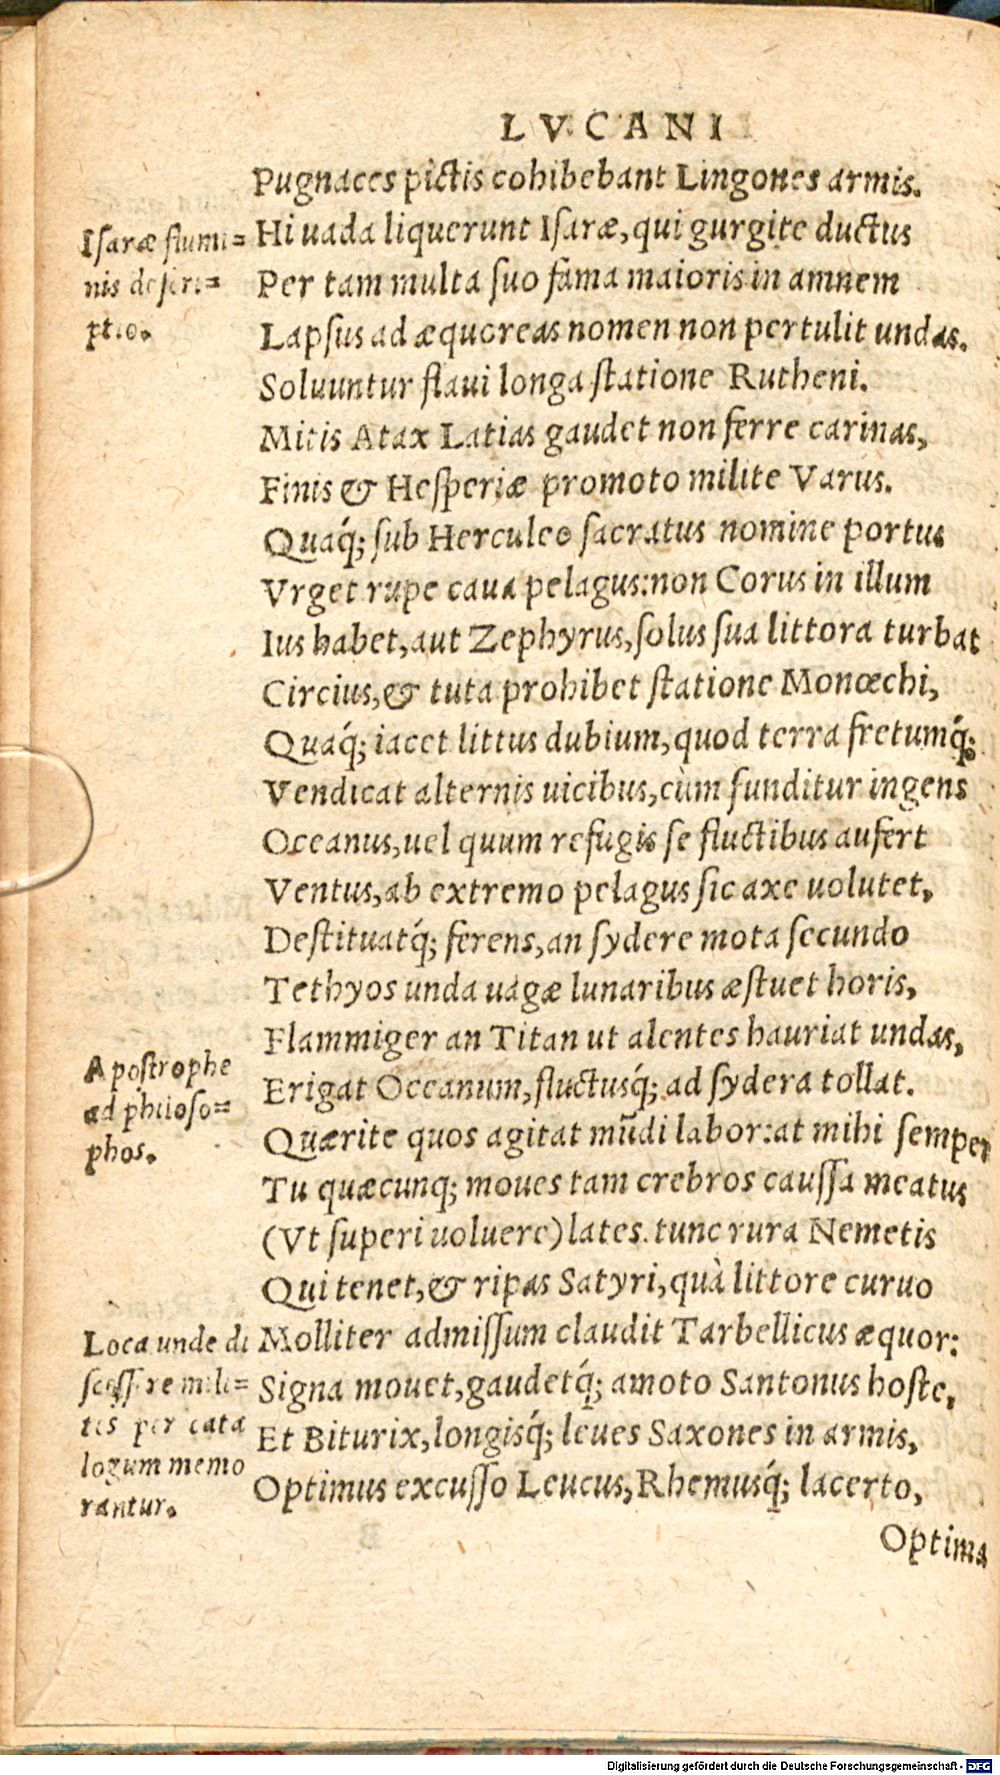 LVCANI
Pugnaces pictis cohibebant Lingones armis.
Iſaræ flumi=
nis deſcri=
ptio.
Hi uada liquerunt Iſaræ, qui gurgite ductus
Per tam multa ſuo fama maioris in amnem
Lapſus ad æquoreas nomen non pertulit undas.
Soluuntur flaui longa ſtatione Rutheni.
Mitis Atax Latias gaudet non ferre carinas,
Finis & Heſperiæ promoto milite Varus.
Quaq́; ſub Herculeo ſacratus nomine portus
Vrget rupe caua pelagus: non Corus in illum
Ius habet, aut Zephyrus, ſolus ſua littora turbat
Circius, & tuta prohibet ſtatione Monœchi,
Quaq́; iacet littus dubium, quod terra fretumq́;
Vendicat alternis uicibus, cùm funditur ingens
Oceanus, uel quum refugis ſe fluctibus aufert
Ventus, ab extremo pelagus ſic axe uolutet,
Deſtituatq́; ferens, an ſydere mota ſecundo
Tethyos unda uagæ lunaribus æſtuet horis,
Flammiger an Titan ut alentes hauriat undas,
Erigat Oceanum, fluctusq́; ad ſydera tollat.
Apoſtrophe
ad philoſo=
phos.
Quærite quos agitat mũdi labor: at mihi ſemper
Tu quæcunq; moues tam crebros cauſſa meatus
(Vt ſuperi uoluere) lates. tunc rura Nemetis
Qui tenet, & ripas Satyri, quà littore curuo
Molliter admiſſum claudit Tarbellicus æquor:
Loca unde di
ſceſſere mili=
tes per cata
logum memo
rantur.
Signa mouet, gaudetq́; amoto Santonus hoſte,
Et Biturix, longisq́; leues Saxones in armis,
Optimus excuſſo Leucus, Rhemusq́; lacerto,
Optima
Digitalisierung gefördert durch die Deutsche Forschungsgemeinschaft - DFG